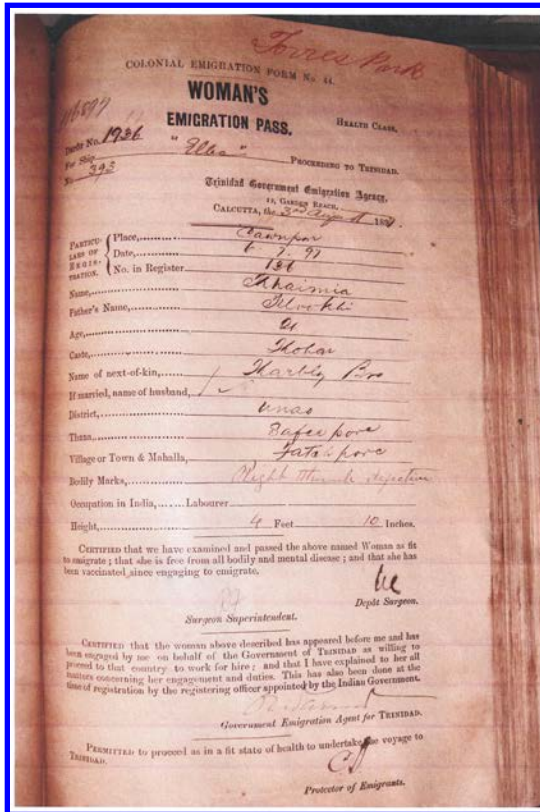 Torres Park
COLONIAL EMIGRATION FORM No. 44.
WOMAN'S
EMIGRATION PASS.
HEALTH CLASS.
Depôt No. 1936
For Ship "Elbe" PROCEEDING TO TRINIDAD.
No. 393
Trinidad Government Emigration Agency,
11, GARDEN REACH,
CALCUTTA, the 3rd August 1897.
PARTICULARS OF REGISTRATION.
Place, Cawnpor
Date, 6.7.97
No. in Register 136
Name,
Father's Name,
Age, 21
Caste,
Name of next-of-kin, Bro
If married, name of husband,
District, Unao
Thana, Safeepore
Village or Town & Mahalla,
Bodily Marks, Right
Occupation in India, Labourer
Height, 4 Feet 10 Inches.
CERTIFIED that we have examined and passed the above named Woman as fit
to emigrate; that she is free from all bodily and mental disease; and that she has
been vaccinated since engaging to emigrate.
Depôt Surgeon.
Surgeon Superintendent.
CERTIFIED that the woman above described has appeared before me and has
been engaged by me on behalf of the Government of TRINIDAD as willing to
proceed to that country to work for hire; and that I have explained to her all
matters concerning her engagement and duties. This has also been done at the
time of registration by the registering officer appointed by the Indian Government.
Government Emigration Agent for TRINIDAD.
PERMITTED to proceed as in a fit state of health to undertake the voyage to
TRINIDAD.
Protector of Emigrants.